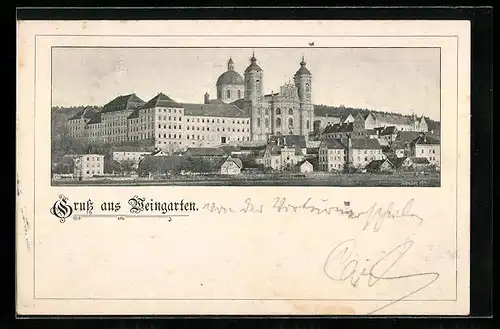 Gruß aus Weingarten. von der
Carl